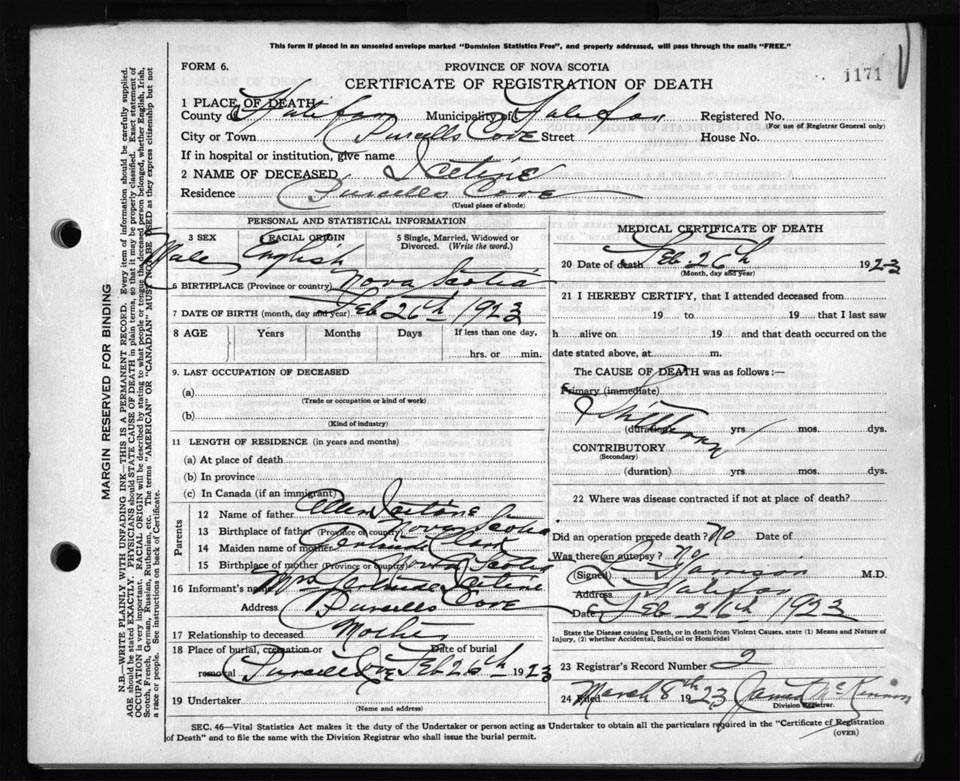 This form if placed in an unsealed envelope marked "Dominion Statistics Free", and properly addressed, will pass through the mails "FREE."
1171
FORM 6.
PROVINCE OF NOVA SCOTIA
CERTIFICATE OF REGISTRATION OF DEATH
1 PLACE OF DEATH
County of Halifax Municipality of Halifax Registered No.
(For use of Registrar General only)
City or Town Purcells Cove Street House No.
If in hospital or institution, give name
2 NAME OF DECEASED
Residence Purcells Cove
(Usual place of abode)
PERSONAL AND STATISTICAL INFORMATION
3 SEX
Male
4 RACIAL ORIGIN
English
5 Single, Married, Widowed or Divorced. (Write the word.)
6 BIRTHPLACE (Province or country) Nova Scotia
7 DATE OF BIRTH (month, day and year) Feb 26th 1923
8 AGE Years Months Days If less than one day,
hrs. or min.
9. LAST OCCUPATION OF DECEASED
(a)
(Trade or occupation or kind of work)
(b)
(Kind of industry)
11 LENGTH OF RESIDENCE (in years and months)
(a) At place of death
(b) In province
(c) In Canada (if an immigrant)
Parents
12 Name of father Allen
13 Birthplace of father (Province or country) Nova Scotia
14 Maiden name of mother
15 Birthplace of mother (Province or country) Nova Scotia
16 Informant's name Mrs Gertrude
Address Purcells Cove
17 Relationship to deceased Mother
18 Place of burial, cremation or removal Purcells Cove
Date of burial Feb 26th 1923
19 Undertaker
(Name and address)
MEDICAL CERTIFICATE OF DEATH
20 Date of death Feb. 26th 1923
(Month, day and year)
21 I HEREBY CERTIFY, that I attended deceased from
19 to 19 that I last saw
h alive on 19 and that death occurred on
date stated above, at m.
The CAUSE OF DEATH was as follows :—
Primary (immediate)
Stillborn
(duration) yrs. mos. dys.
CONTRIBUTORY
(Secondary)
(duration) yrs. mos. dys.
22 Where was disease contracted if not at place of death?
Did an operation precede death? No Date of
Was there an autopsy? No
(Signed) M.D.
Address Halifax
Date Feb 26th 1923
State the Disease causing Death, or in death from Violent Causes, state (1) Means and Nature of Injury, (2) whether Accidental, Suicidal or Homicidal
23 Registrar's Record Number 2
24 Filed March 8th 1923 James McKinnon
Division Registrar.
SEC. 46—Vital Statistics Act makes it the duty of the Undertaker or person acting as Undertaker to obtain all the particulars required in the "Certificate of Registration
of Death" and to file the same with the Division Registrar who shall issue the burial permit.
(OVER)
MARGIN RESERVED FOR BINDING
N.B.—WRITE PLAINLY WITH UNFADING INK—THIS IS A PERMANENT RECORD. Every item of information should be carefully supplied.
AGE should be stated EXACTLY. PHYSICIANS should STATE CAUSE OF DEATH in plain terms, so that it may be properly classified. Exact statement of
OCCUPATION is very important. RACIAL ORIGIN will be described by stating to what people or tongue the deceased person belonged, whether English, Irish,
Scotch, French, German, Russian, Ruthenian, etc. The terms "AMERICAN" OR "CANADIAN" MUST NOT BE USED as they express citizenship but not
a race or people. See instructions on back of Certificate.